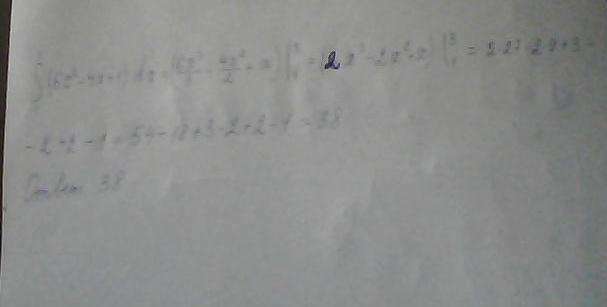 ∫(6x²-4x+1)dx = (6x³/3 - 4x²/2 + x)|₁³ = (2x³-2x²+x)|₁³ = 2·27-2·9+3-
-2+2-1 = 54-18+3-2+2-1 = 38
Ответ 38